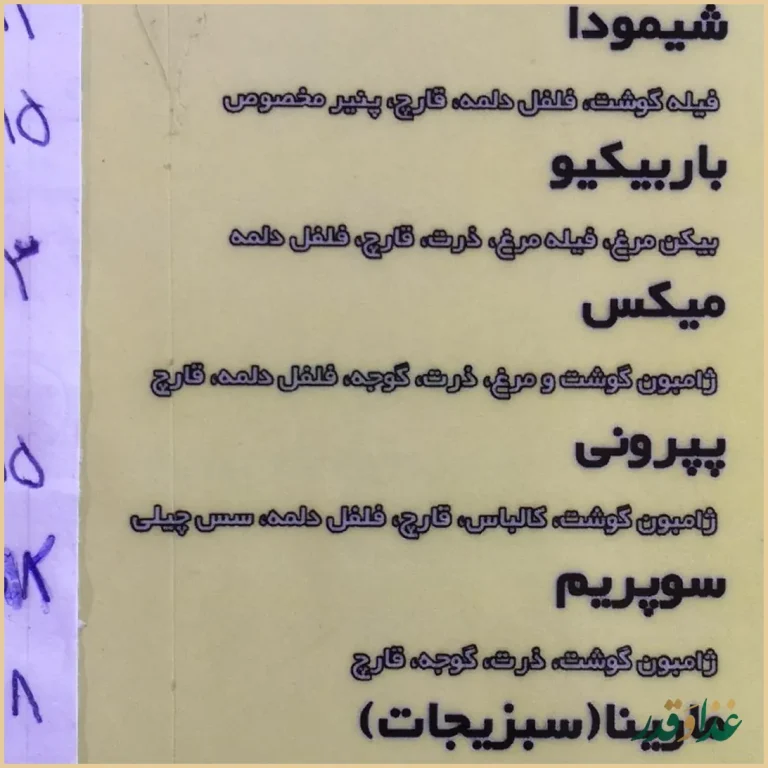 شیمودا
فیله گوشت، فلفل دلمه، قارچ، پنیر مخصوص
باربیکیو
بیکن مرغ، فیله مرغ، ذرت، قارچ، فلفل دلمه
میکس
ژامبون گوشت و مرغ، ذرت، گوجه، فلفل دلمه، قارچ
پپرونی
ژامبون گوشت، کالباس، قارچ، فلفل دلمه، سس چیلی
سوپریم
ژامبون گوشت، ذرت، گوجه، قارچ
(سبزیجات)
۱۵
۳
۵
۸